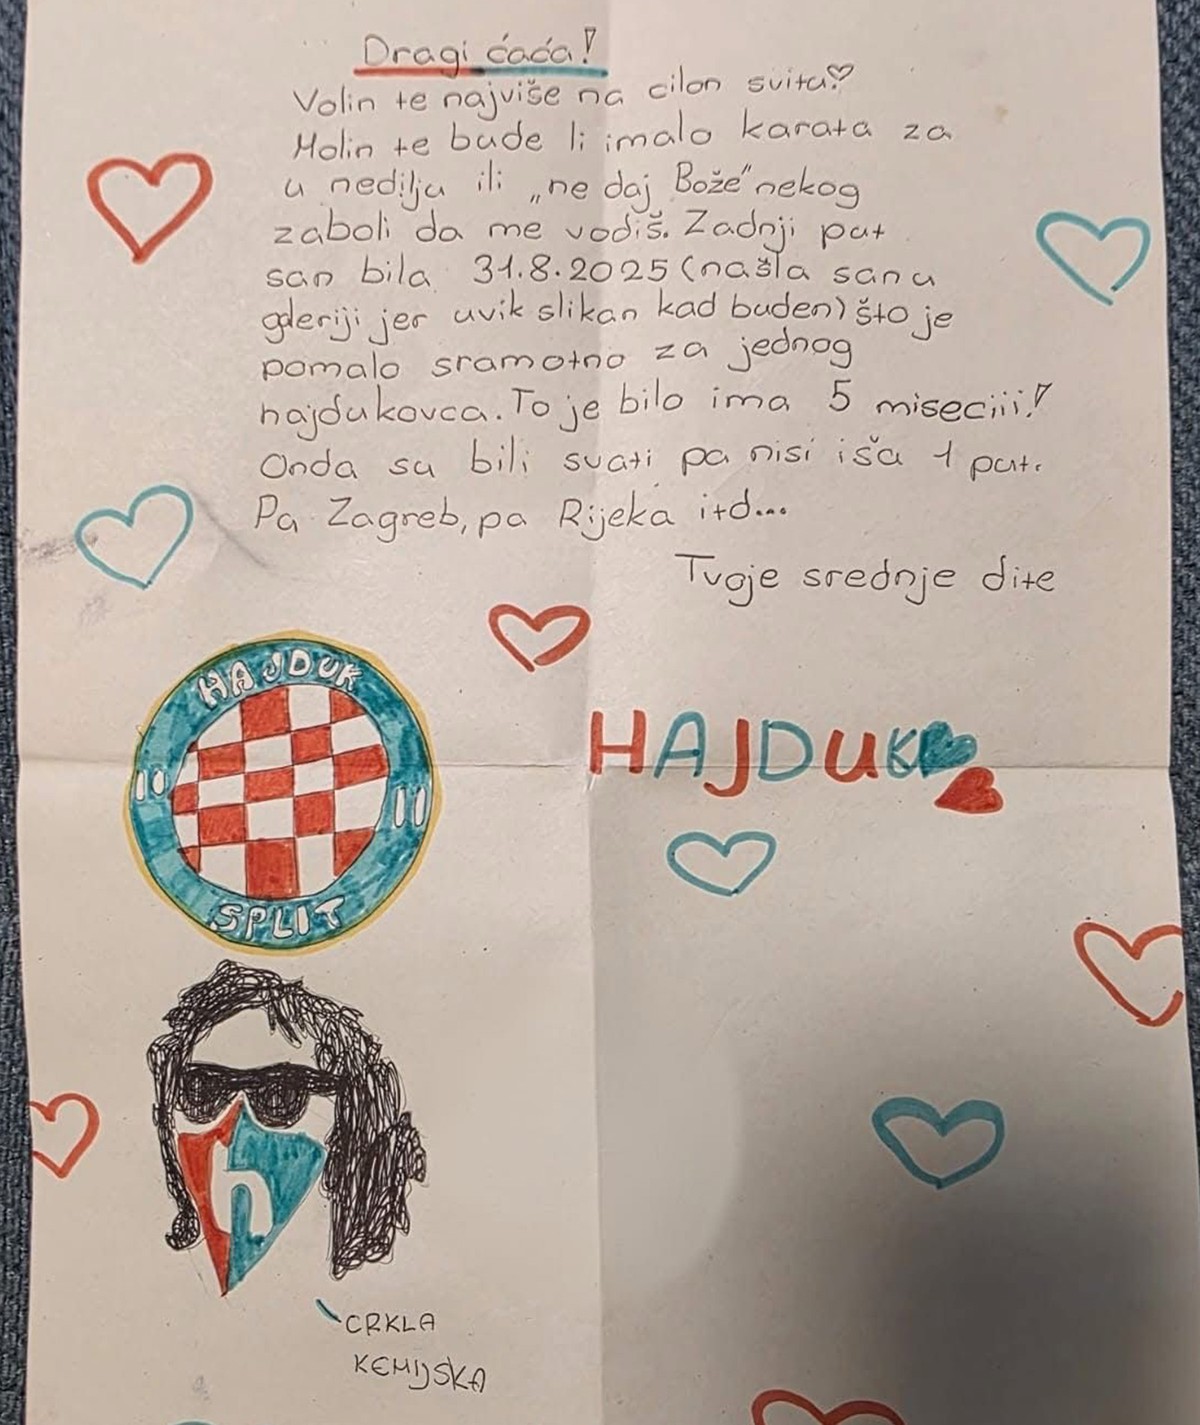 Dragi ćaća!
Volin te najviše na cilon svitu!
Molin te bude li imalo karata za
u nedilju ili „ne daj Bože" nekog
zaboli da me vodiš. Zadnji put
san bila 31.8.2025 (našla san u
galeriji jer uvik slikan kad buden) što je
pomalo sramotno za jednog
hajdukovca. To je bilo ima 5 miseciii!
Onda su bili svati pa nisi iša 1 put.
Pa Zagreb, pa Rijeka itd...
Tvoje srednje dite
HAJDUK
19 11
SPLIT
HAJDUK
h
CRKLA
KEMIJSKA